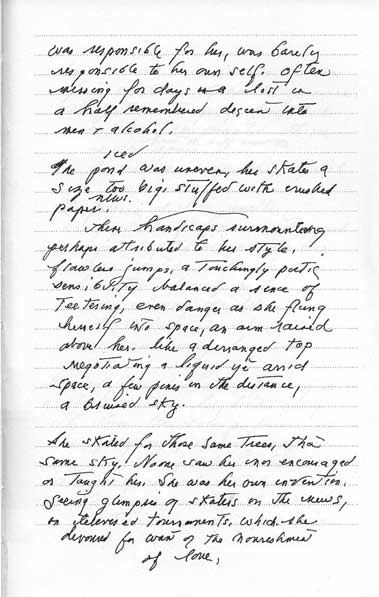 was responsible for her, was barely
responsible to her own self. often
missing for days in a lost in
a half remembered descent into
men + alcohol.
iced
The pond was uneven, her skates a
size too big. stuffed with crushed
news
paper.
These handicaps surmounting
perhaps attributed to her style.
flawless jumps, a touchingly poetic
sensibility balanced a sence of
teetering, even danger as she flung
herself into space, an arm raised
above her. like a deranged top
negotiating a liquid yet arid
space, a few pines in the distance,
a bruised sky.
She skated for those same trees, that
same sky. No one saw her nor encouraged
or taught her. She was her own invention.
Seeing glimpses of skaters on the news,
on televised tournaments. which she
devoured for want of the nourishment
of love.